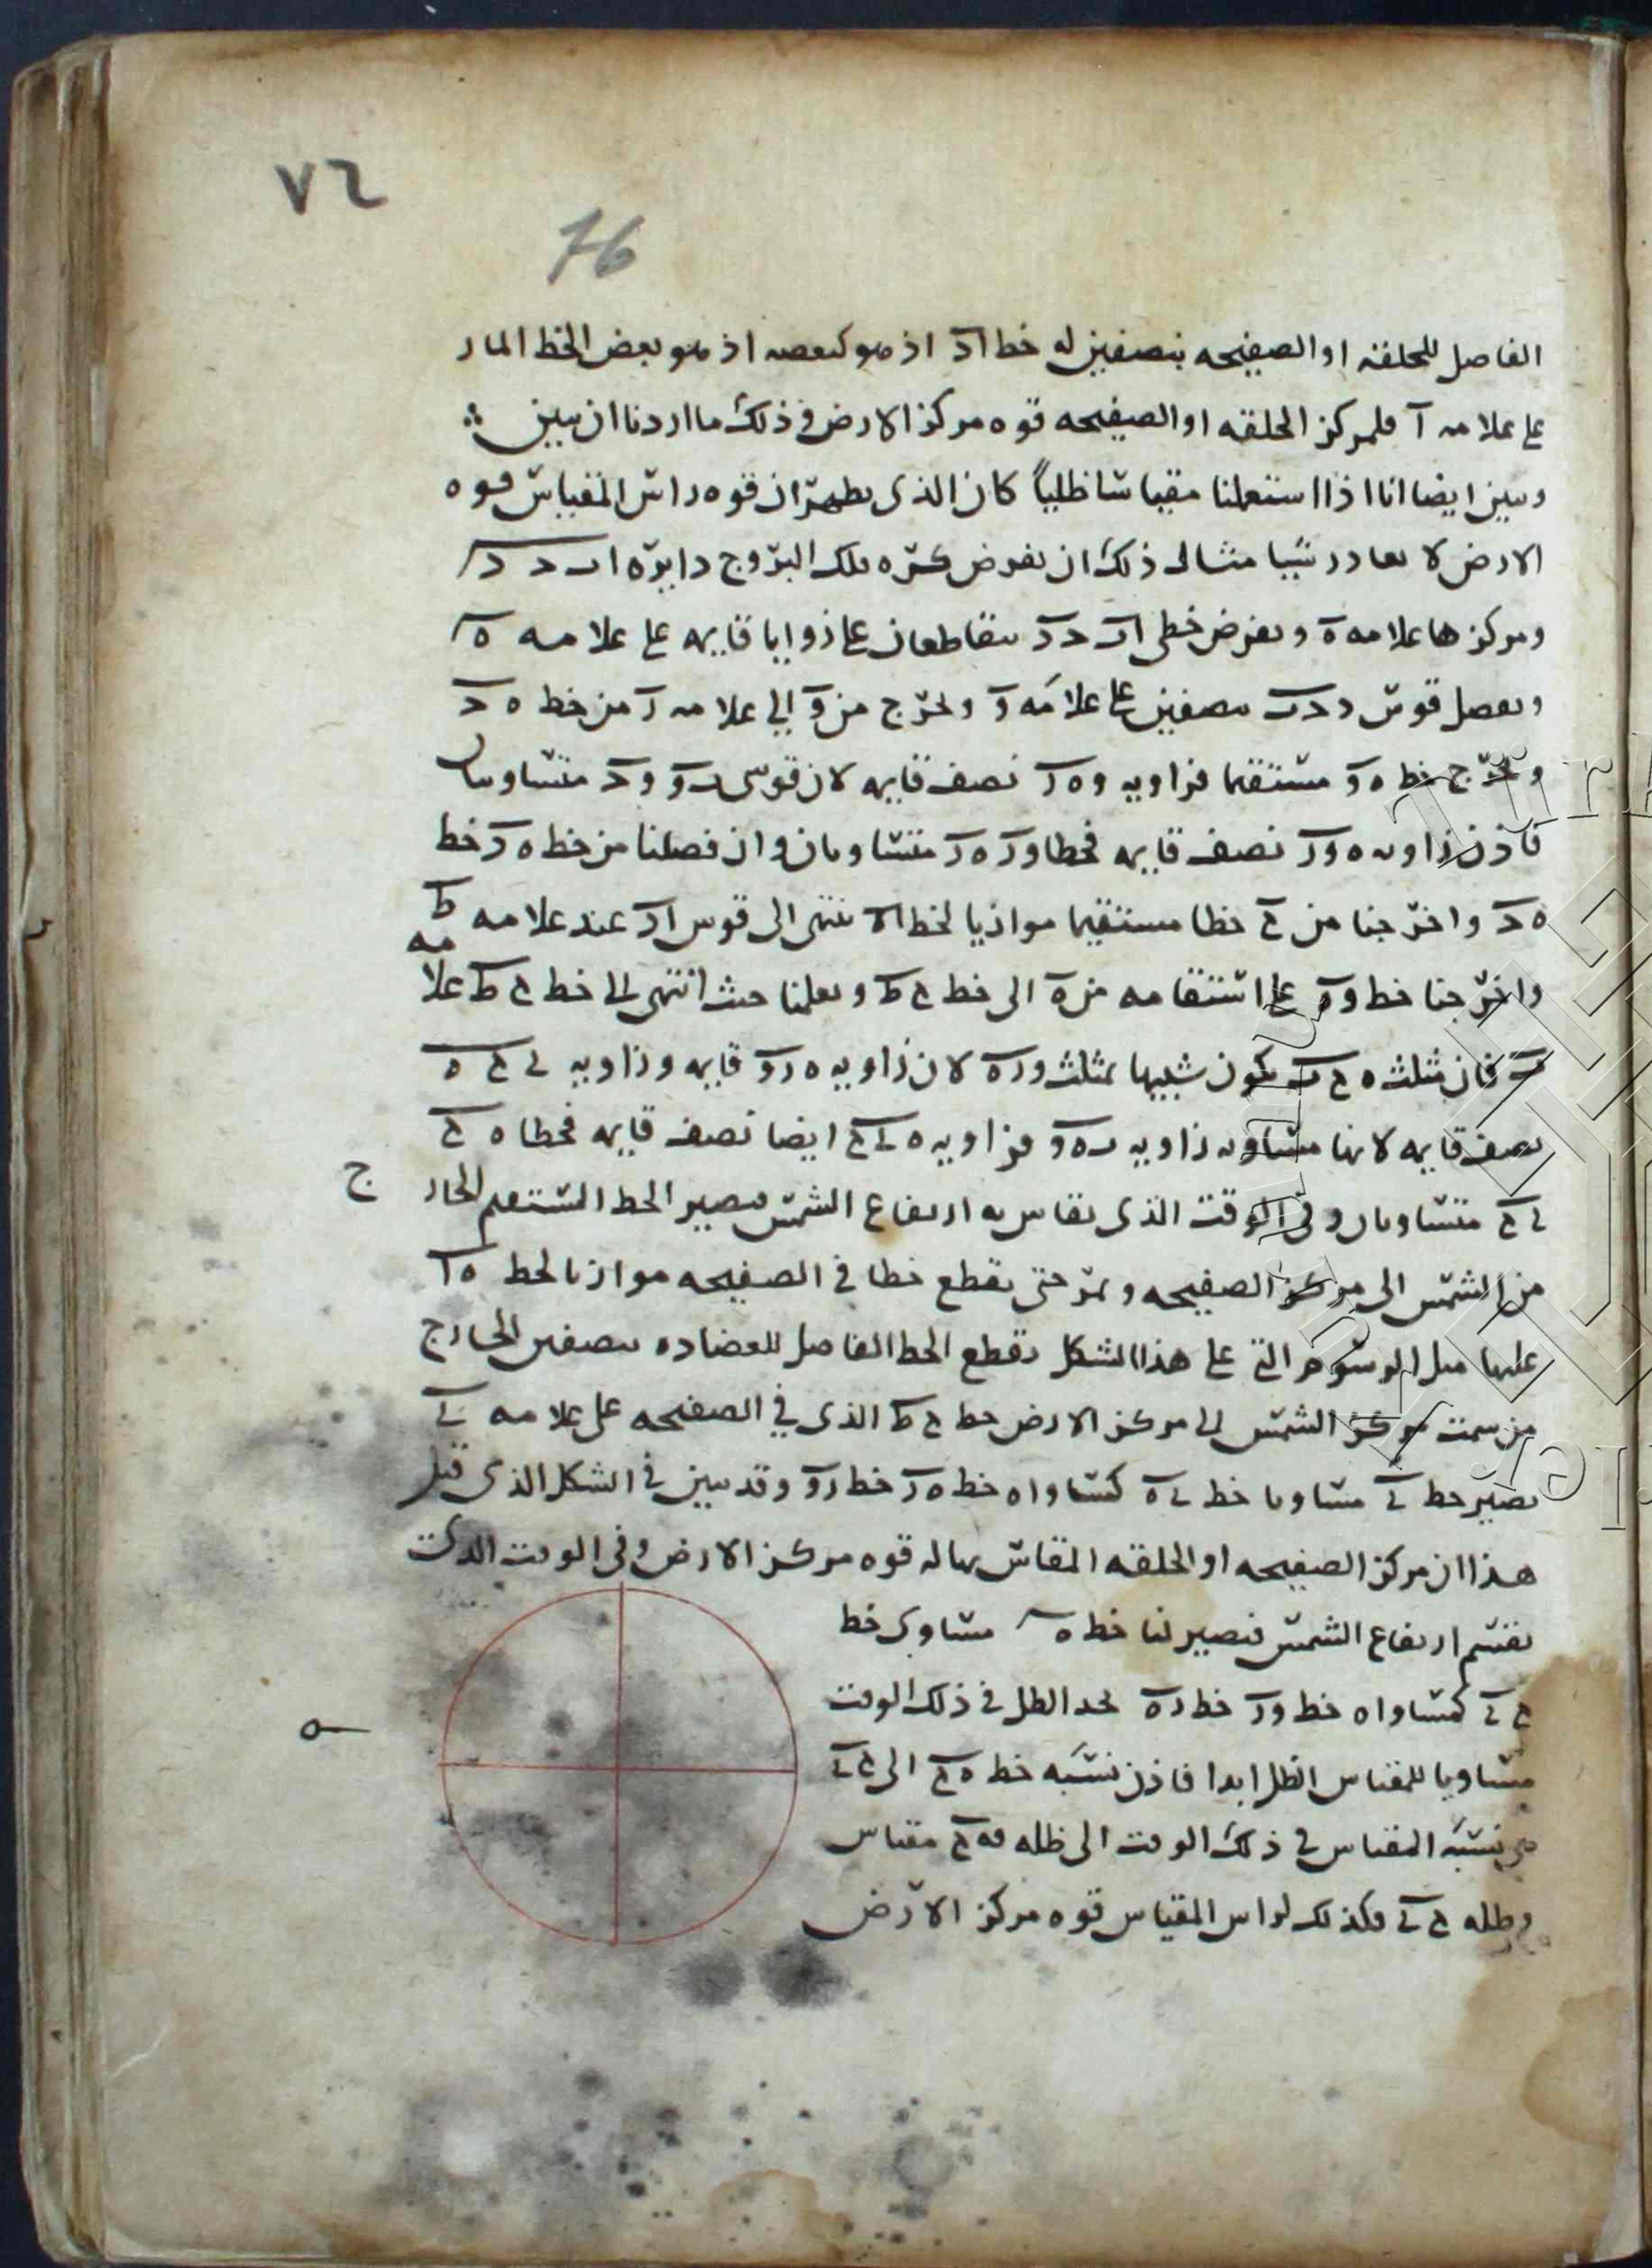 ٧٦
76
الفاصل للحلقه او الصفيحه بنصفين له خط اد اذ هو كبعضه اذ هو بعض الخط المار
على علامه آ فلمركز الحلقه او الصفيحه قوه مركز الارض فى ذلك ما اردنا ان نبين
ونبين ايضا انا اذا استعملنا مقياسا ظليا كان الذى يظهر ان قوه راس المقياس قوه
الارض لا يغادر شيا مثال ذلك ان نفرض كره فلك البروج دايره اب ج د
ومركزها علامه ه ونفرض خطى اب ج د يتقاطعان على زوايا قايمه على علامه ه
ونفصل قوس د ب بنصفين على علامه و ونخرج من و الى علامه ر من خط ه د
ونخرج خط ه و مستقيما فزاويه و ه ر نصف قايمه لان قوسى ب و و د متساويتان
فاذن زاويه ه و ر نصف قايمه فخطا و ر ه ر متساويان وان فصلنا من خط ه ج خط
ه ح واخرجنا من ح خطا مستقيما موازيا لخط اه ينتهى الى قوس اج عند علامه ط
واخرجنا خط و ه على استقامه من ه الى خط ح ط وتعلمنا حيث انتهى الى خط ح ط علامه
ى فان مثلث ه ح ى يكون شبيها بمثلث و ر ه لان زاويه ه ر و قايمه وزاويه ى ح ه
نصف قايمه لانها مساويه زاويه ر ه و فزاويه ه ى ح ايضا نصف قايمه فخطا ه ح
ى ح متساويان وفى الوقت الذى نقاس به ارتفاع الشمس فيصير الخط المستقيم الخارج
من الشمس الى مركز الصفيحه ويمر حتى يقطع خطا فى الصفيحه موازيا لخط ه ا
عليها مثل الرسوم التى على هذا الشكل نقطع الخط الفاصل للعضاده بنصفين الخارج
من سمت مركز الشمس الى مركز الارض خط ح ط الذى فى الصفيحه على علامه ى
يصير خط ى مساويا خط ى ه كمساواه خط ه ر خط ر و وقد تبين فى الشكل الذى قبل
هذا ان مركز الصفيحه او الحلقه المقاس بها له قوه مركز الارض وفى الوقت الذى
نقسم ارتفاع الشمس فيصير لنا خط ه مساوى خط
ح ى كمساواه خط و ر خط ر ه نجد الظل فى ذلك الوقت
مساويا للمقياس الظل ابدا فاذن نسبه خط ه ح الى ح ى
هى نسبه المقياس فى ذلك الوقت الى ظله فه ح مقياس
وظله ح ى فكذلك لراس المقياس قوه مركز الارض